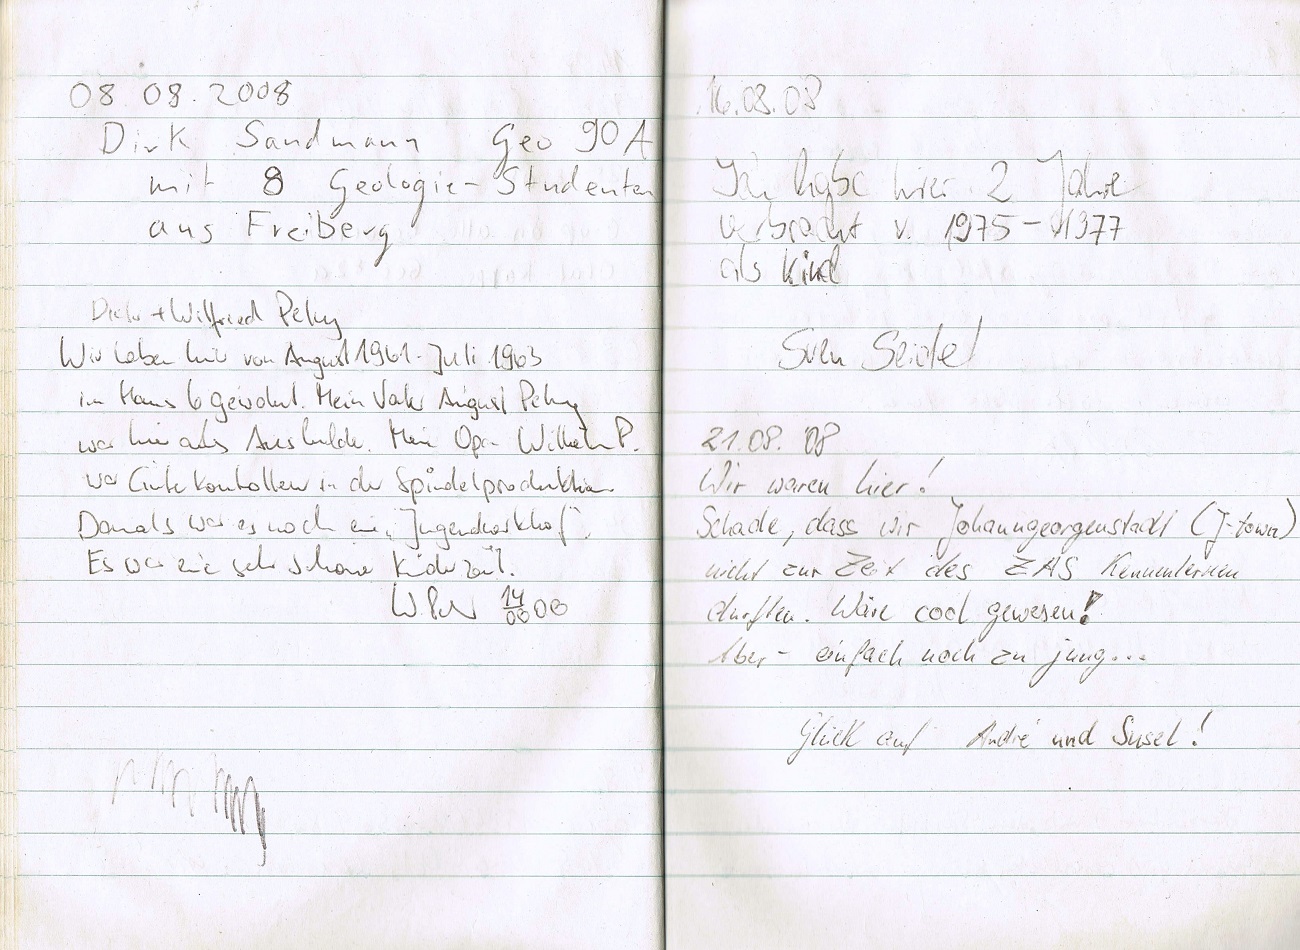 08 08. 2008
Dirk Sandmann Geo 90 A
mit 8 Geologie-Studenten
aus Freiberg
+ Wilfried
Wir haben hier von August 1961 - Juli 1963
im Haus 6 gewohnt. Mein Vater August
war hier als Ausbilder. Mein Opa Wilhelm P.
war Gütekontrolleur in der Spindelproduktion.
Damals war es noch ein „Jugendwerkhof".
Es war eine sehr schöne Kinderzeit.
14/08 08
16.08.08
Ich habe hier 2 Jahre
verbracht v. 1975 - 1977
als Kind
Sven Seidel
21.08. '08
Wir waren hier!
Schade, dass wir Johanngeorgenstadt (J-town)
nicht zur Zeit des ZAS kennenlernen
durften. Wäre cool gewesen!
Aber - einfach noch zu jung...
Glück auf André und Susel!